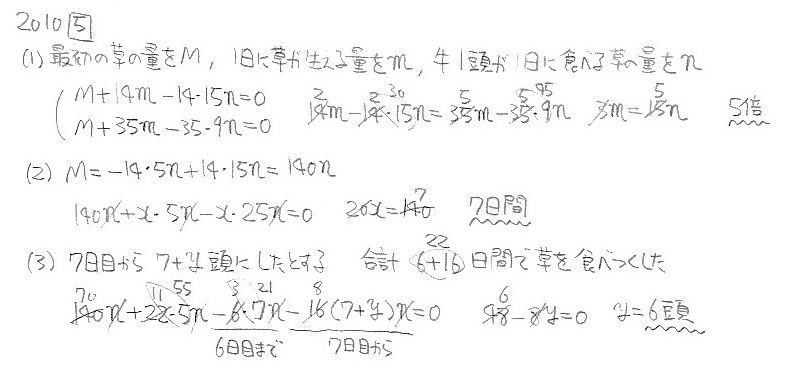 2010 5
(1) 最初の草の量をM, 1日に草が生える量をm, 牛1頭が1日に食べる草の量をn
M+14m-14・15n=0
M+35m-35・9n=0
2 2 30 5 5 45
14m-14・15n=35m-35・9n
5
3m=15n 5倍
(2) M=-14・5n+14・15n=140n
140n+x・5n-x・25n=0
7
20x=140 7日間
(3) 7日目から 7+y頭にしたとする 合計 6+16日間で草を食べつくした
22
70 11 55 3 21 8
140n+22・5n-6・7n-16(7+y)n=0
6
48-8y=0 y=6頭
6日目まで 7日目から